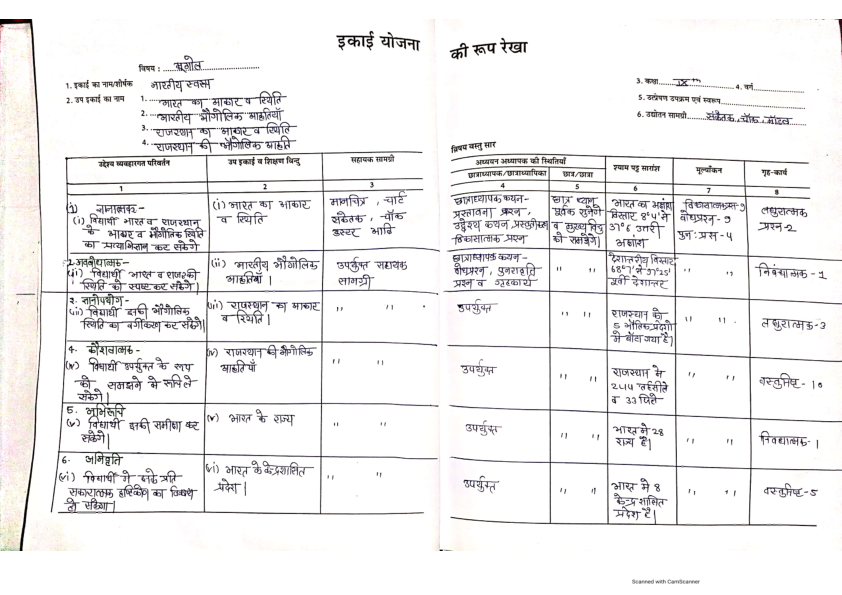 इकाई योजना की रूप रेखा
विषय : भूगोल
1. इकाई का नाम/शीर्षक भारतीय स्वरूप
2. उप इकाई का नाम 1. भारत का आकार व स्थिति
2. भारतीय भौगोलिक आकृतियाँ
3. राजस्थान का आकार व स्थिति
4. राजस्थान की भौगोलिक आकृति
3. कक्षा IX th 4. वर्ग
5. उत्प्रेषण उपक्रम एवं स्वरूप
6. उद्योतन सामग्री संकेतक, चॉक, मॉडल
विषय वस्तु सार
उद्देश्य व्यवहारगत परिवर्तन
उप इकाई व शिक्षण बिन्दु
सहायक सामग्री
अध्ययन अध्यापक की स्थितियाँ
छात्राध्यापक/छात्राध्यापिका
छात्र/छात्रा
श्याम पट्ट सारांश
मूल्यांकन
गृह-कार्य
1 2 3 4 5 6 7 8
1) ज्ञानात्मक -
(i) विद्यार्थी भारत व राजस्थान
के आकार व भौगोलिक स्थिति
का प्रत्याभिज्ञान कर सकेंगे
(i) भारत का आकार
व स्थिति
मानचित्र, चार्ट
संकेतक, चॉक
डस्टर आदि
छात्राध्यापक कथन-
प्रस्तावना प्रश्न,
उद्देश्य कथन, प्रस्तुतीकरण
विकासात्मक प्रश्न
छात्र ध्यान
पूर्वक सुनेंगे
व मुख्य बिंदु
को समझेंगे|
भारत का अक्षांश
विस्तार 8°4' से
37°6 उत्तरी
अक्षांश
विकासात्मक प्रश्न-9
बोधप्रश्न - 9
पुनः प्रश्न - 4
लघुरात्मक
प्रश्न-2
2. अवबोधात्मक -
(ii) विद्यार्थी भारत व राजस्थान की
स्थिति को स्पष्ट कर सकेंगे|
(ii) भारतीय भौगोलिक
आकृतियाँ |
उपर्युक्त सहायक
सामग्री
छात्राध्यापक कथन -
बोधप्रश्न, पुनरावृति
प्रश्न व गृहकार्य
" "
देशान्तरीय विस्तार
68°7' से 97°25'
पूर्वी देशान्तर
" "
निबंधात्मक - 1
3. ज्ञानोपयोग -
(iii) विद्यार्थी इसकी भौगोलिक
स्थिति का वर्गीकरण कर सकेंगे|
(iii) राजस्थान का आकार
व स्थिति |
" "
उपर्युक्त
" "
राजस्थान को
5 भौतिक प्रदेशों
में बाँटा गया है|
" "
लघुरात्मक-3
4. कौशलात्मक -
(iv) विद्यार्थी उपर्युक्त के रूप
को समझने में रूचि ले
सकेंगे|
(iv) राजस्थान की भौगोलिक
आकृतियाँ
" "
उपर्युक्त
" "
राजस्थान में
244 तहसीलें
व 33 जिले
" "
वस्तुनिष्ठ - 10
5. अभिरूचि
(v) विद्यार्थी इसकी समीक्षा कर
सकेंगे|
(v) भारत के राज्य
" "
उपर्युक्त
" "
भारत में 28
राज्य हैं|
" "
निबंधात्मक-1
6. अभिवृति
(vi) विद्यार्थी में इसके प्रति
सकारात्मक दृष्टिकोण का विकास
हो सकेगा|
(vi) भारत के केन्द्रशासित
प्रदेश |
" "
उपर्युक्त
" "
भारत में 8
केन्द्र शासित
प्रदेश हैं|
" "
वस्तुनिष्ठ-5
Scanned with CamScanner